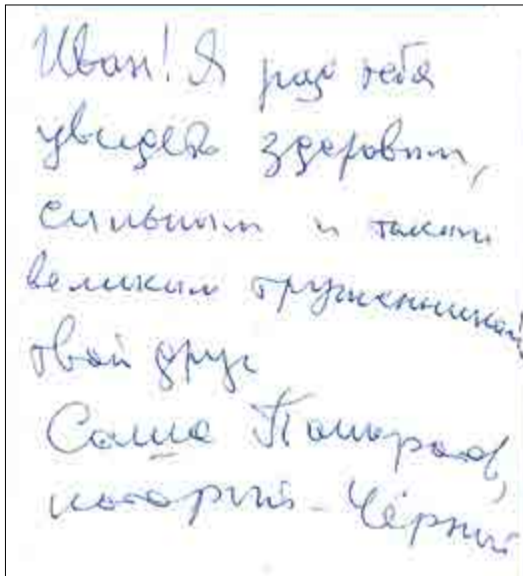 Иван! Я рад тебя
увидеть здоровым,
сильным и таким
великим тружеником
твой друг
Саша
который - Чёрный